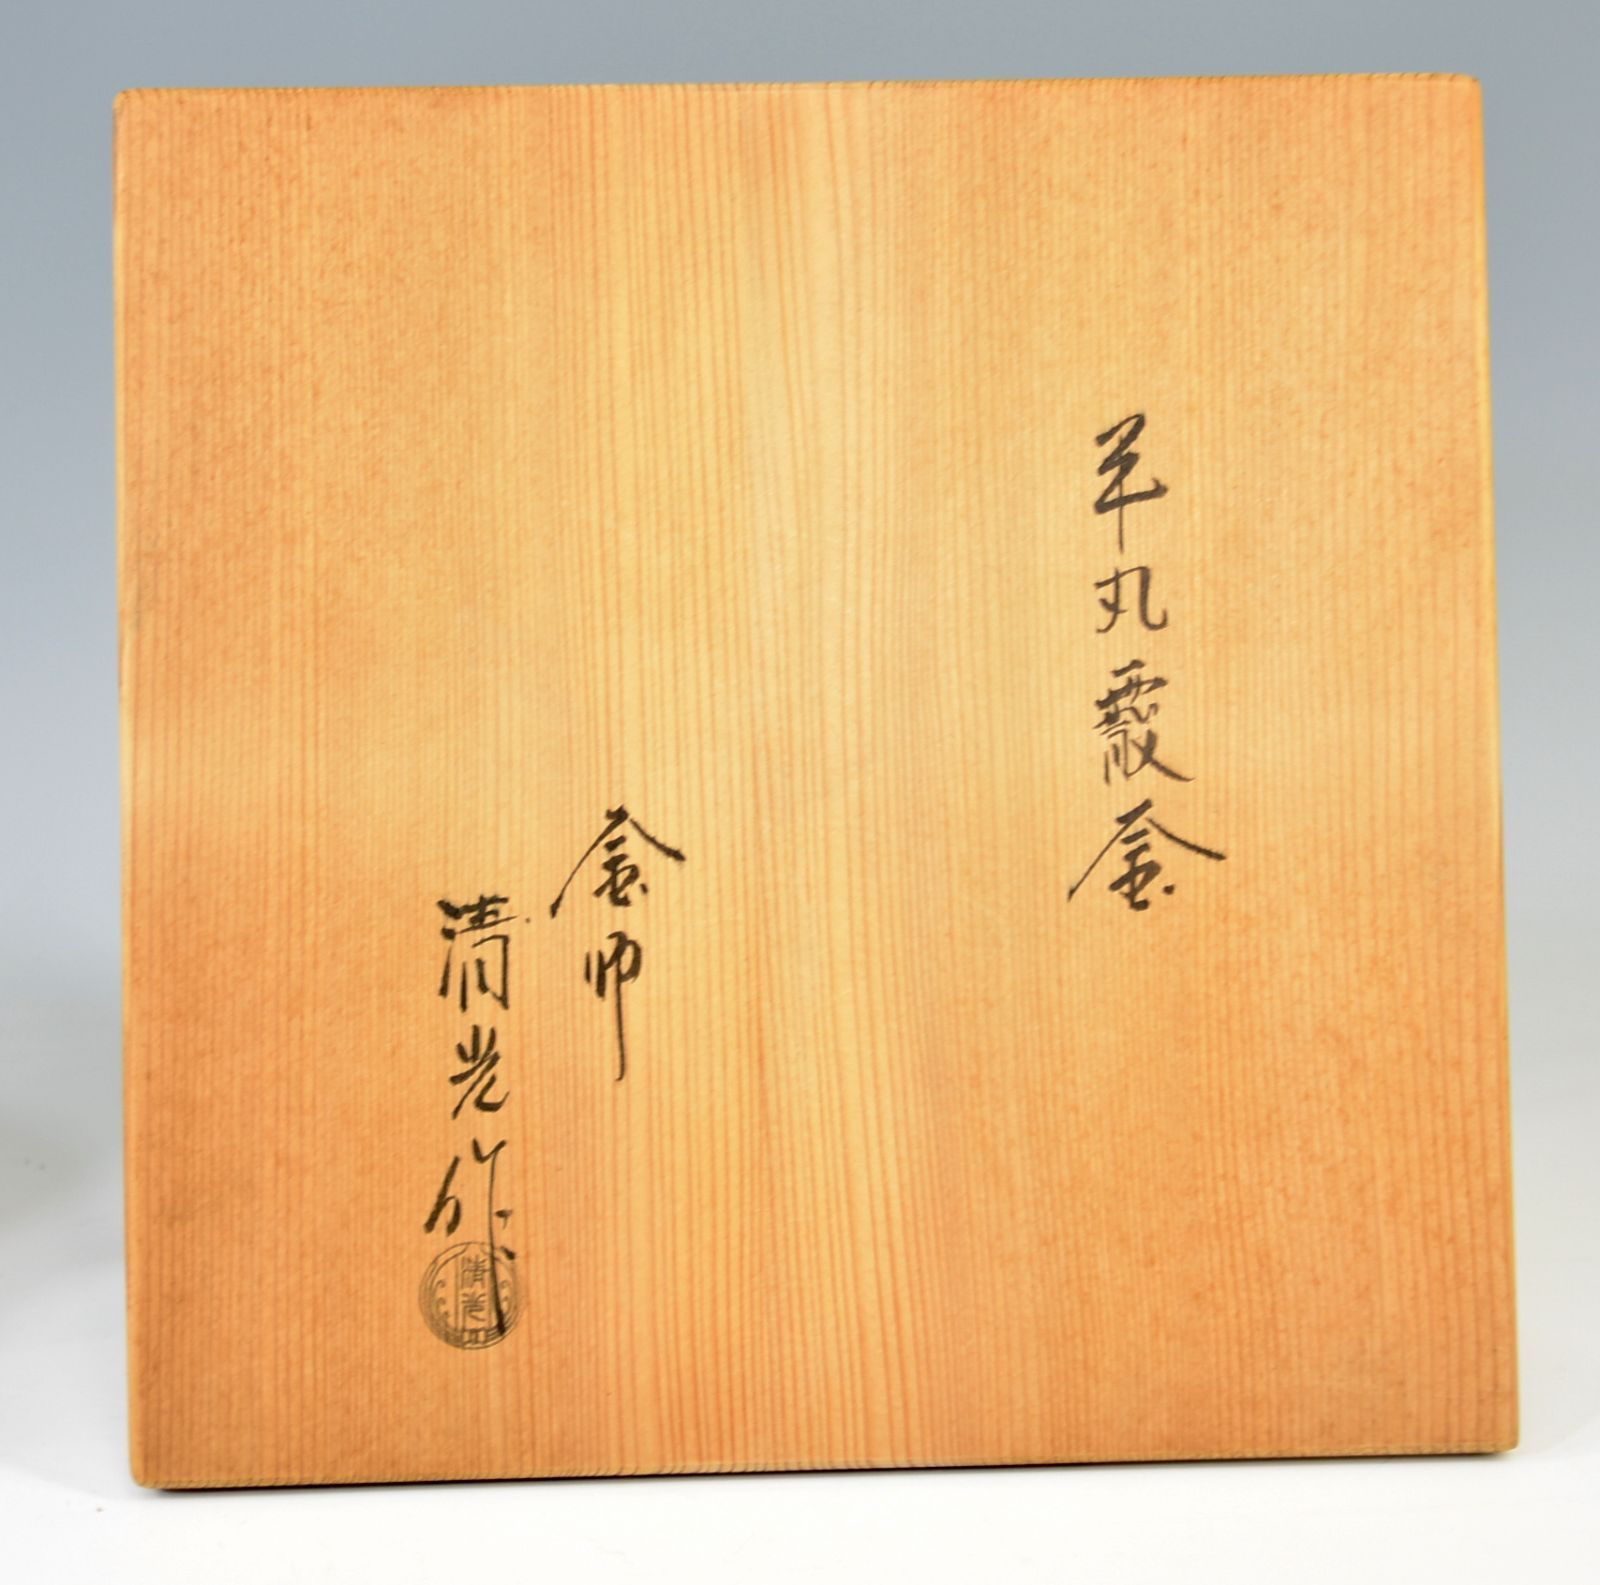 平丸霰釜
釜師
清光作
清光